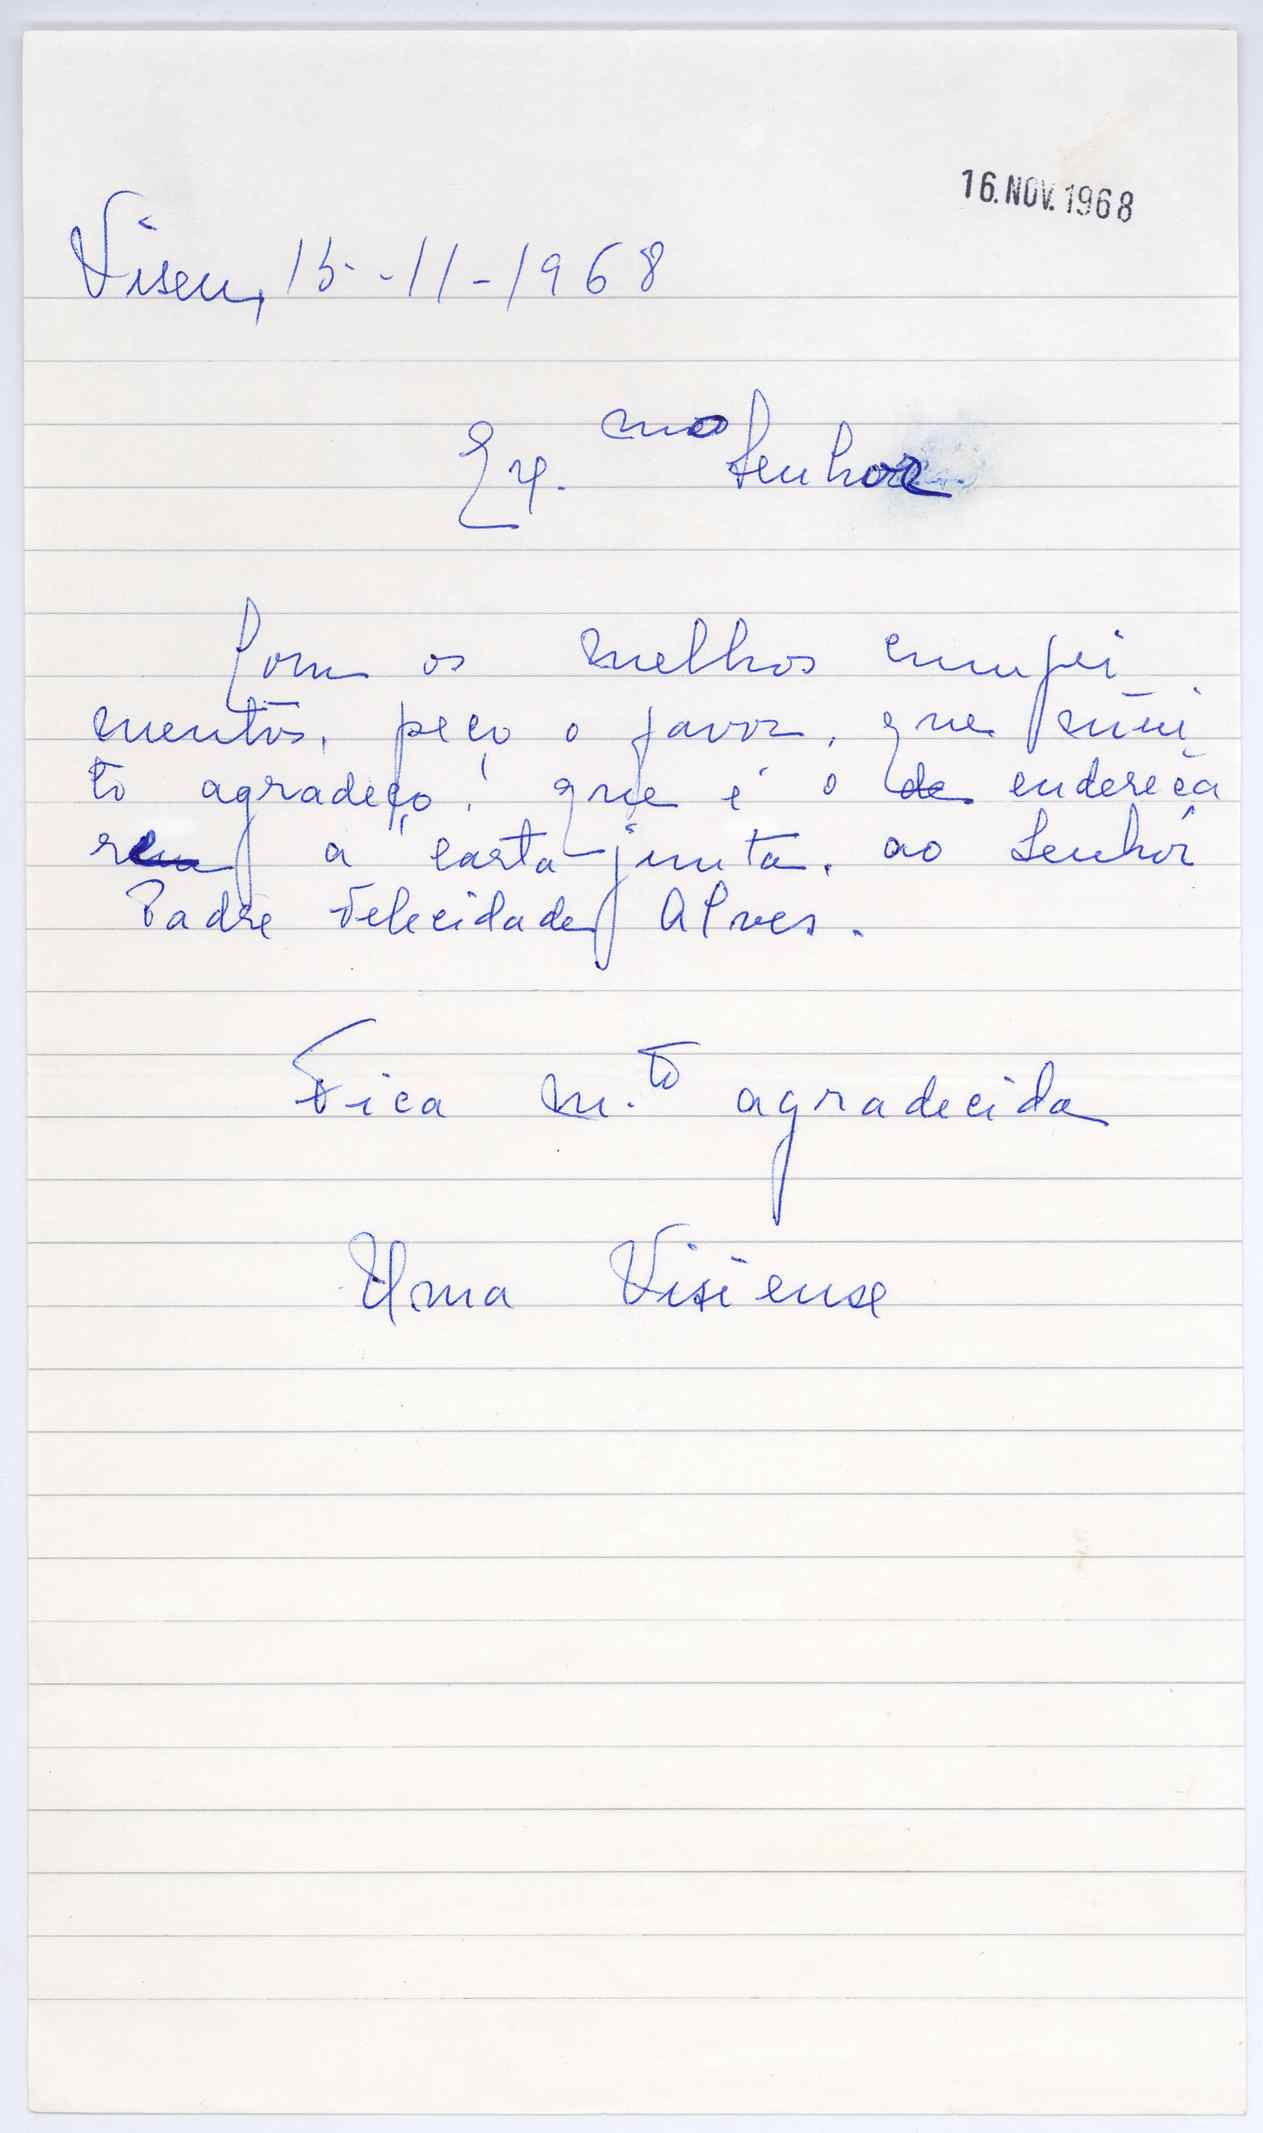 16. NOV. 1968
Viseu, 15-11-1968
Ex.mo Senhor
Com os melhos cumpri
mentos, peço o favor, que mui
to agradeço, que é o de endereça
rem a carta junta, ao Senhor
Padre Felicidade Alves.
Fica m.to agradecida
Uma Visiense